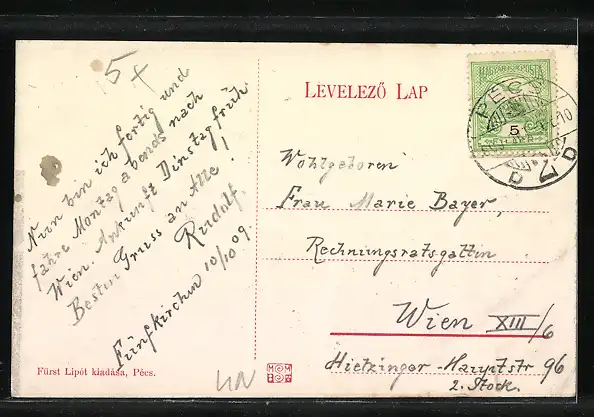 5x
Nun bin ich fertig und
fahre Montag abends nach
Wien. Ankunft Dinstag früh
Besten Gruss an Alle!
Rudolf.
Fünfkirchen 10/10 09.
Fürst Lipót kiadása, Pécs.
LEVELEZŐ LAP
MAGYAR KIR. POSTA
PÉCS
5
Wohlgeboren
Frau Marie Bayer,
Rechnungsratsgattin
Wien XIII/6
Hietzinger-Hauptstr 96
2. Stock.